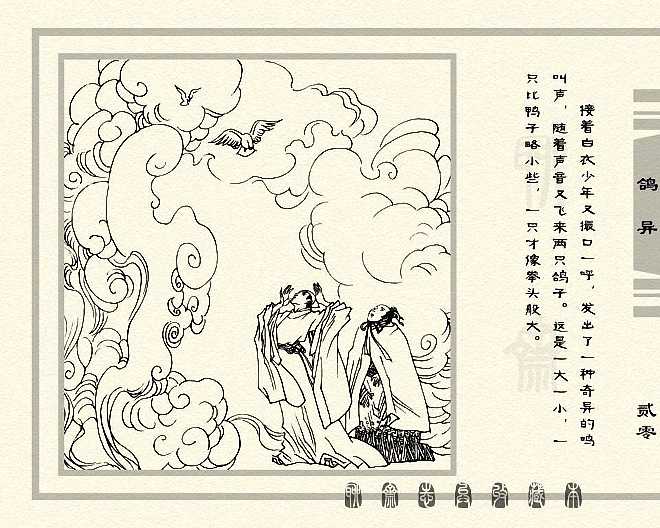 接着白衣少年又撮口一呼，发出了一种奇异的鸣
叫声，随着声音又飞来两只鸽子。这是一大一小，一
只比鸭子略小些，一只才像拳头般大。
鸽异
贰零
聊斋志异收藏本